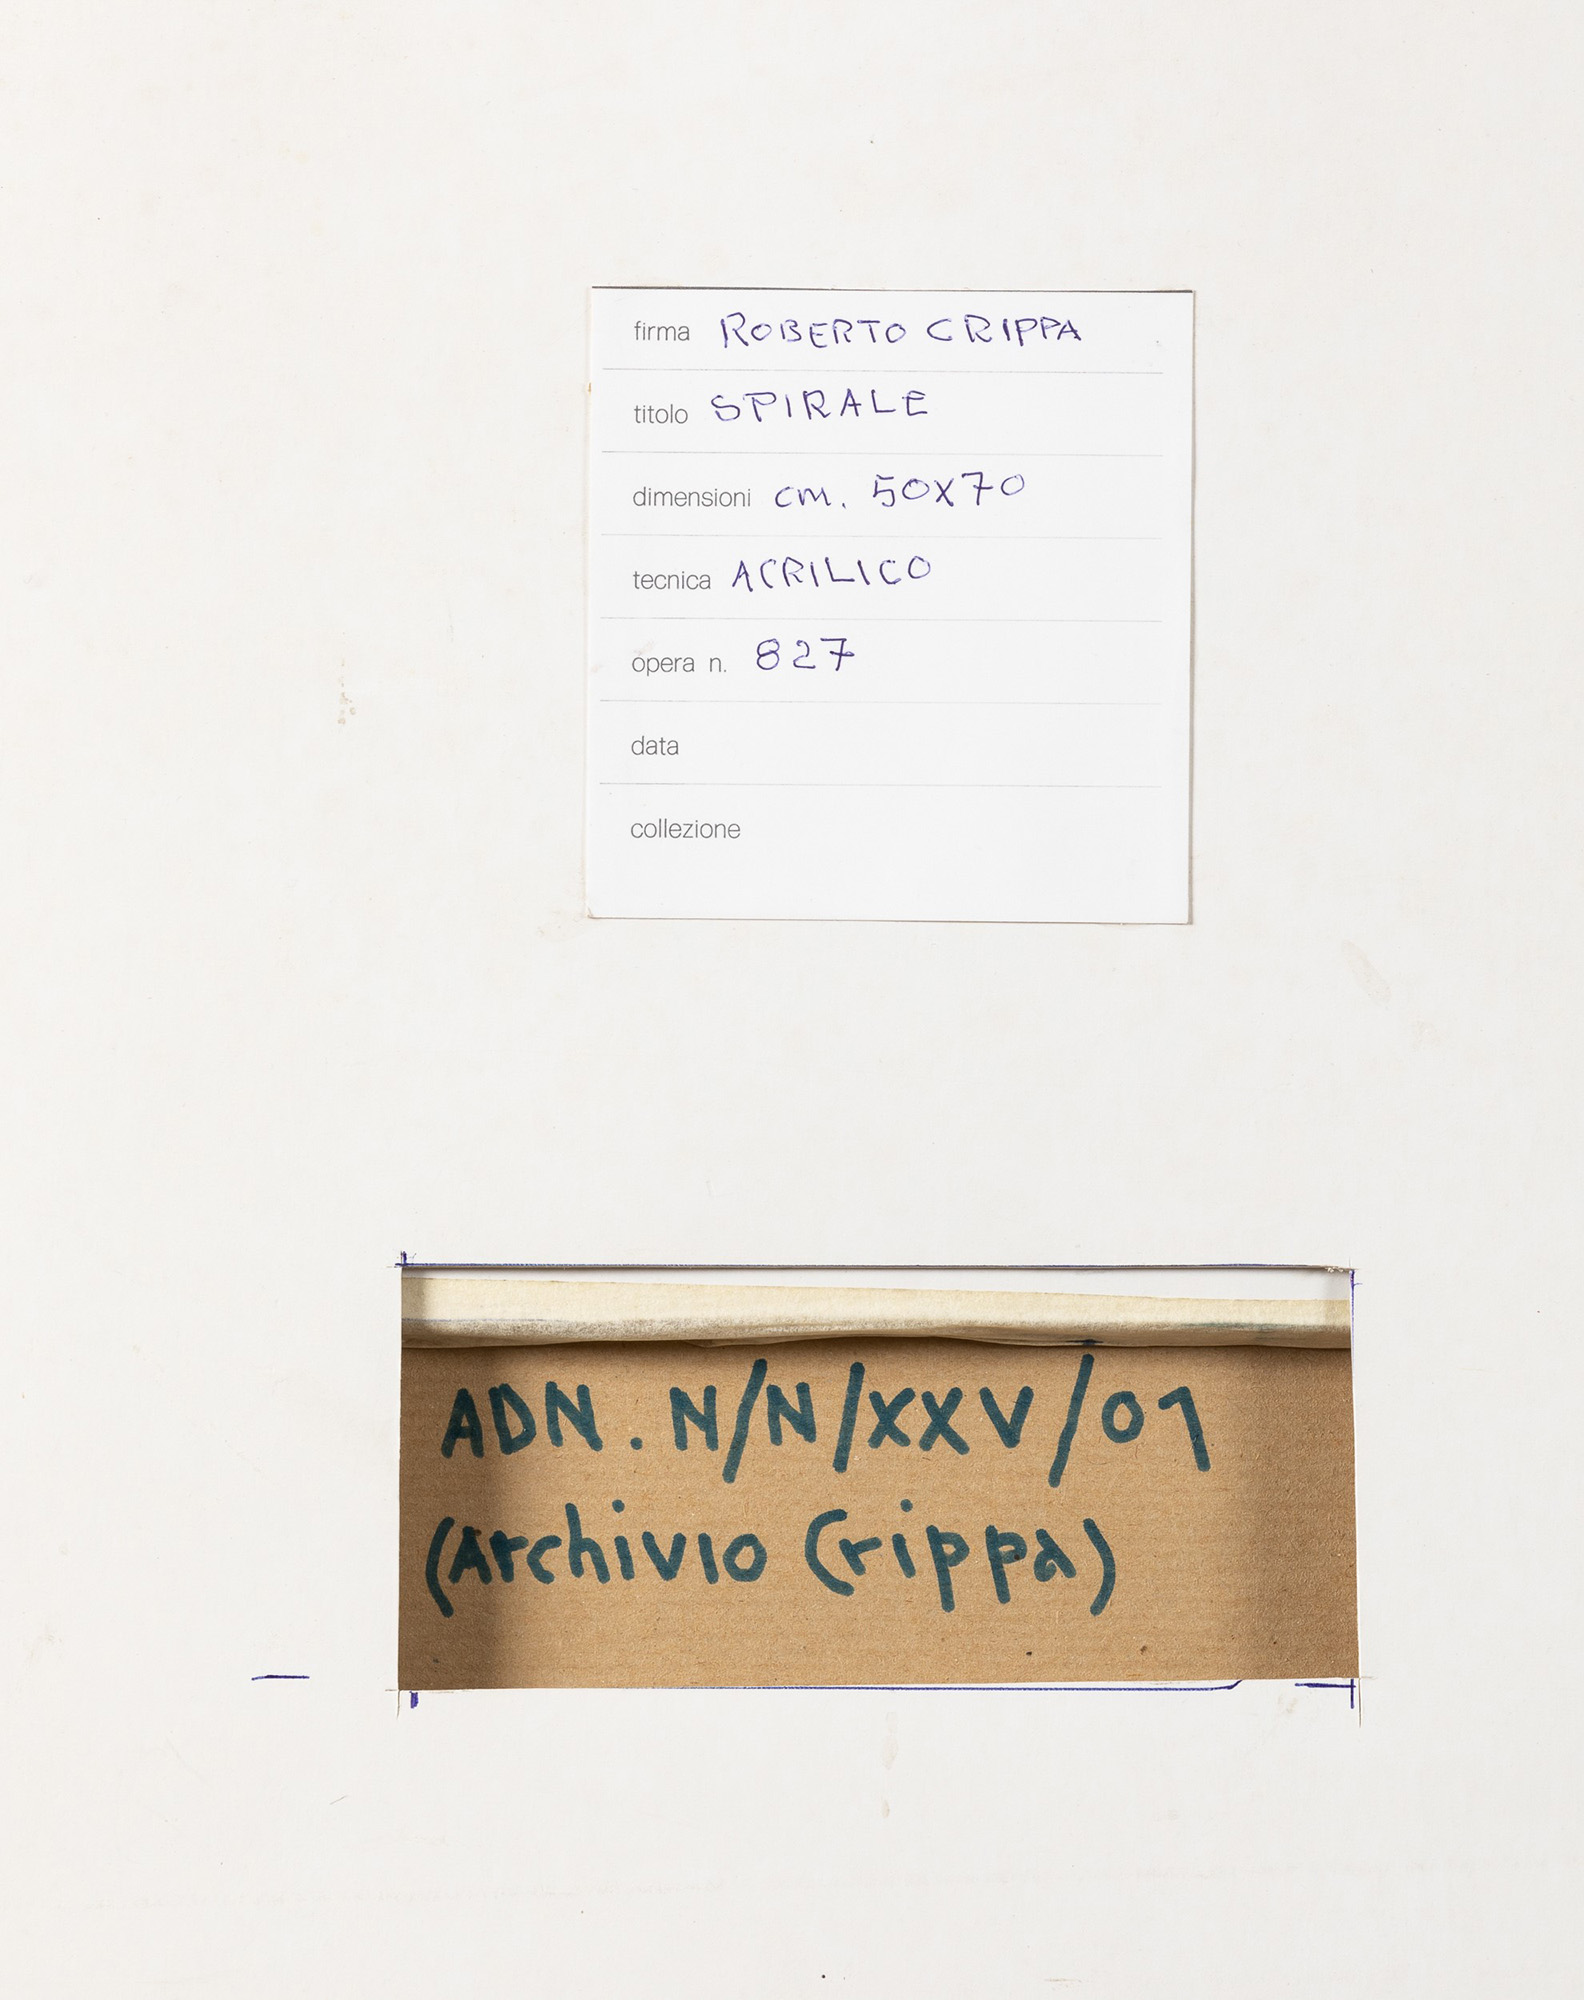 firma ROBERTO CRIPPA
titolo SPIRALE
dimensioni cm. 50x70
tecnica ACRILICO
opera n. 827
data
collezione
ADN. N/N/XXV/01
(Archivio Crippa)